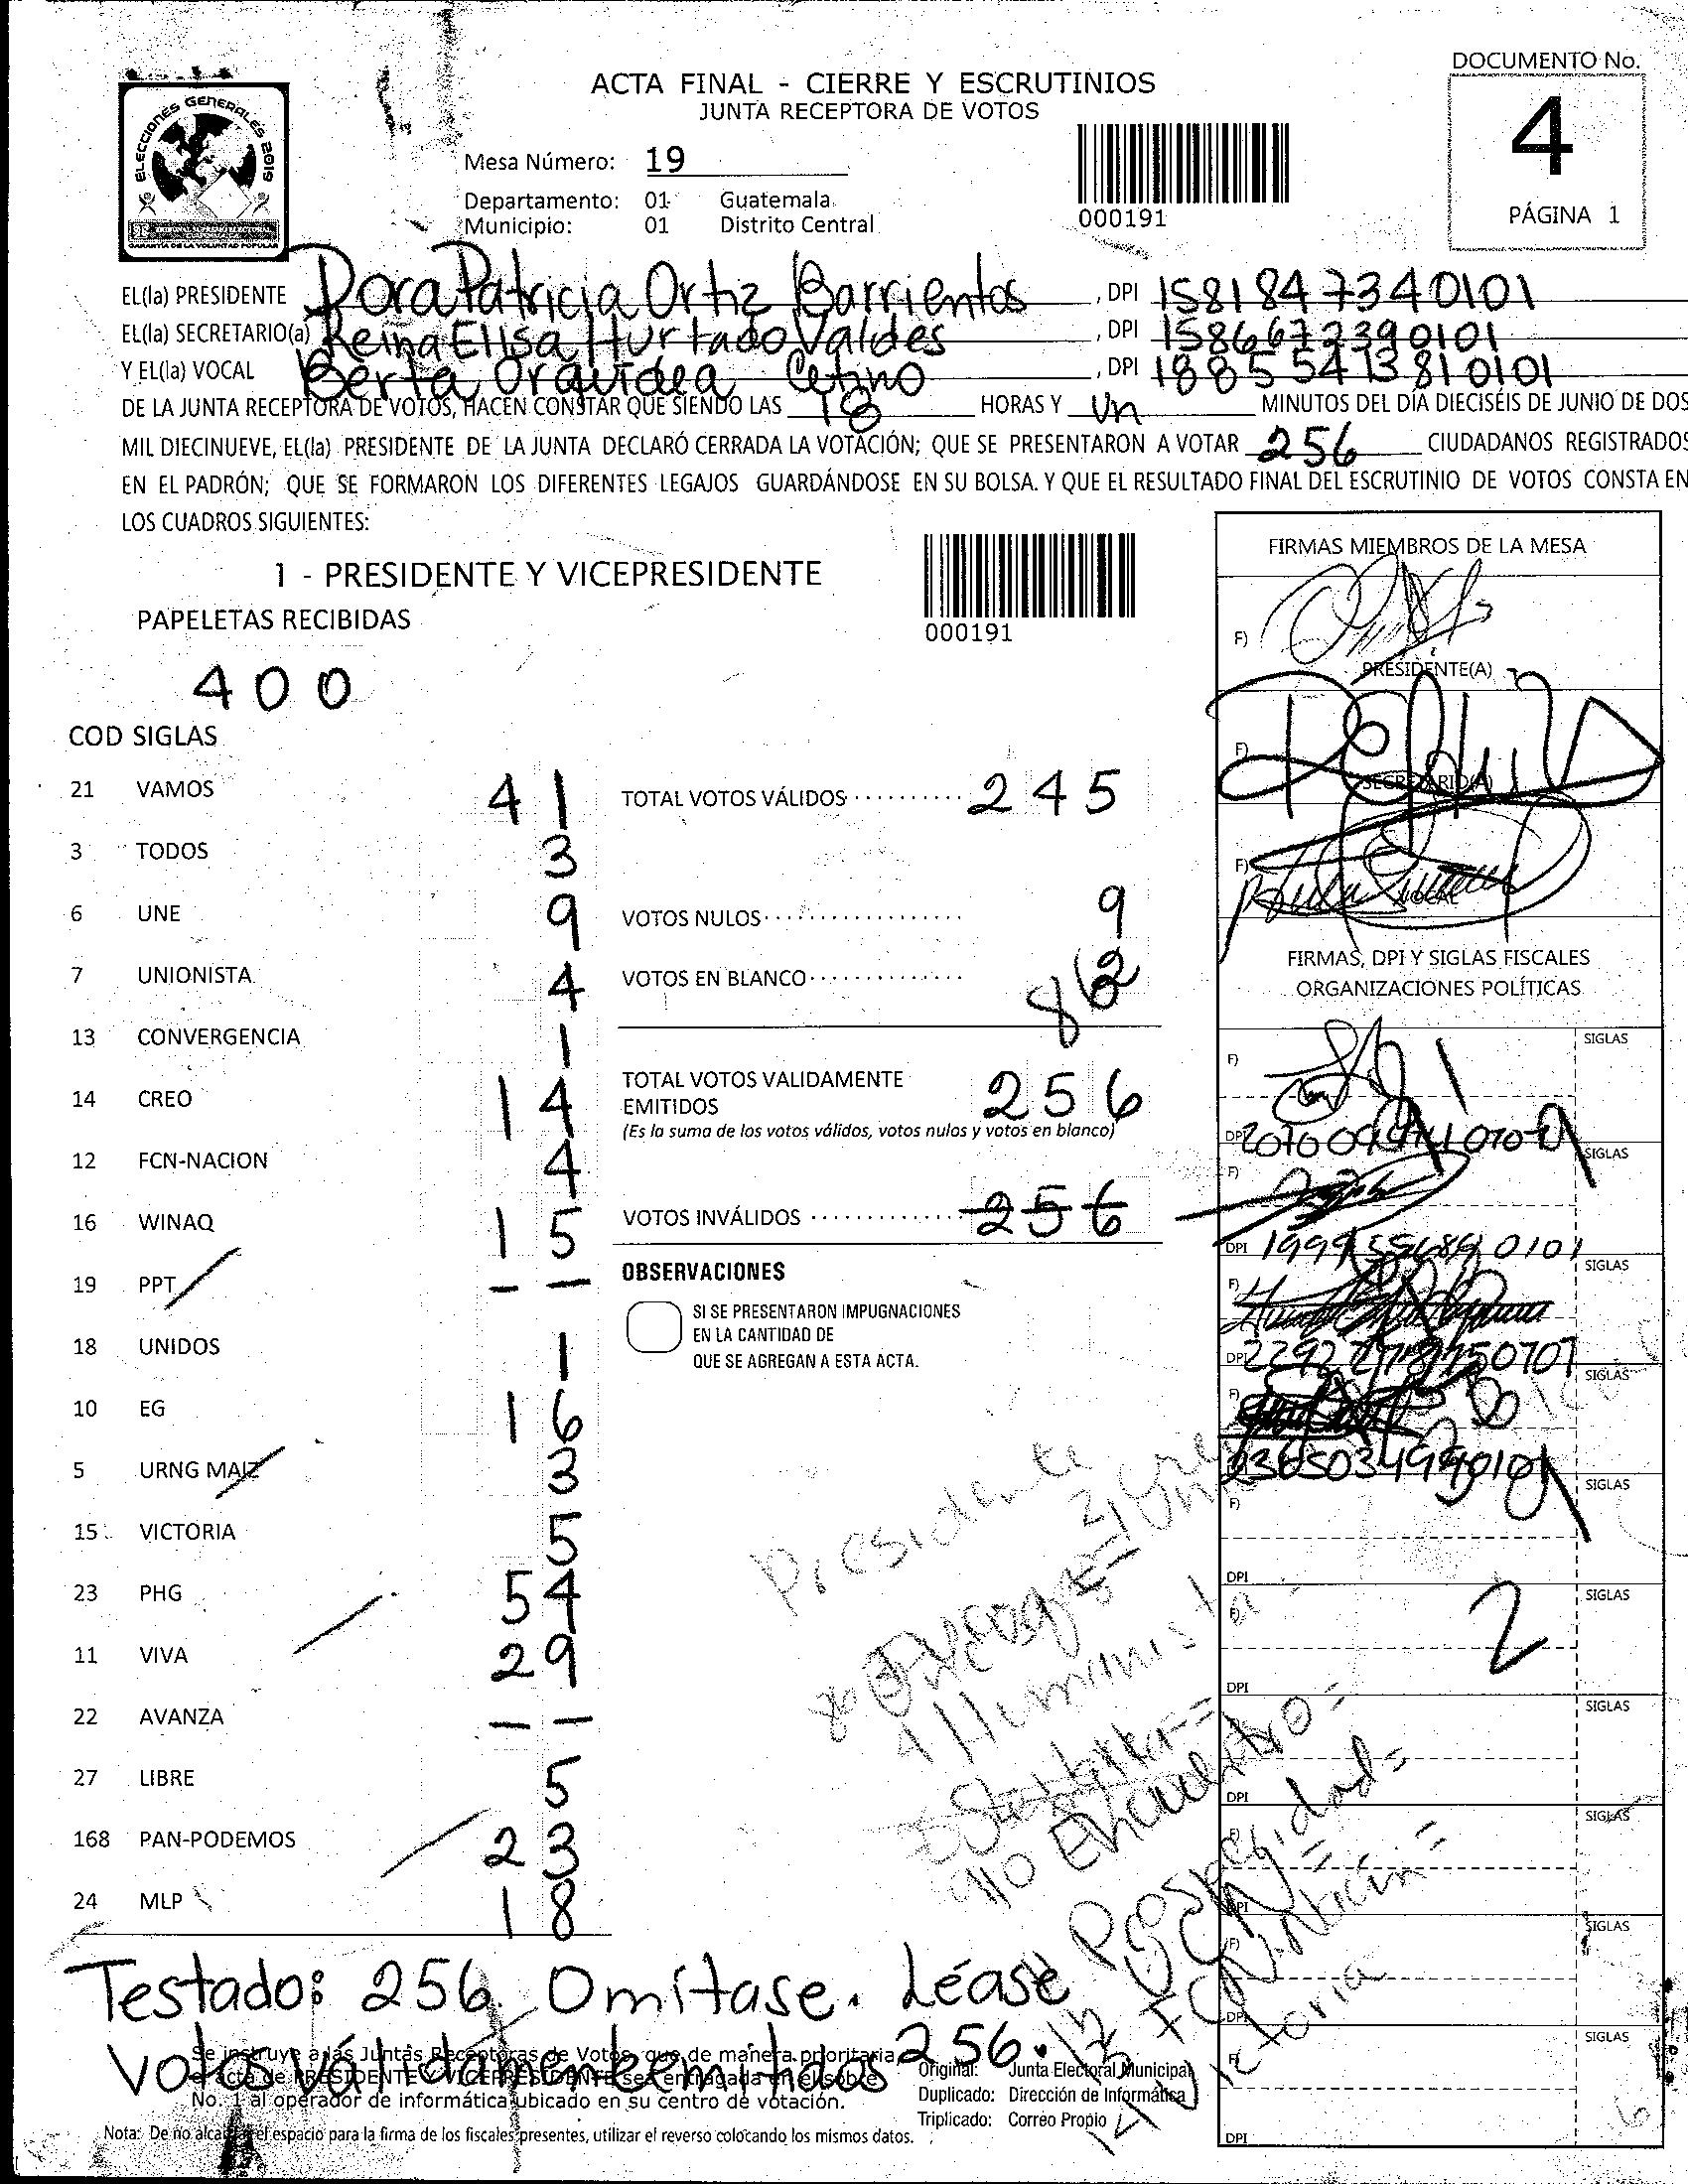 DOCUMENTO No.
4
PÁGINA 1
ELECCIONES GENERALES 2019
GARANTÍA DE LA VOLUNTAD POPULAR
ACTA FINAL - CIERRE Y ESCRUTINIOS
JUNTA RECEPTORA DE VOTOS
Mesa Número: 19
Departamento: 01 Guatemala
Municipio: 01 Distrito Central
000191
EL(la) PRESIDENTE Dora Patricia Ortiz Barrientos , DPI 1581847340101
EL(la) SECRETARIO(a) Reina Elisa Hurtado Valdes , DPI 1586672390101
Y EL(la) VOCAL Berta Orquidea Cetino , DPI 1885541381 0101
DE LA JUNTA RECEPTORA DE VOTOS, HACEN CONSTAR QUE SIENDO LAS 18 HORAS Y Un MINUTOS DEL DÍA DIECISÉIS DE JUNIO DE DOS
MIL DIECINUEVE, EL(la) PRESIDENTE DE LA JUNTA DECLARÓ CERRADA LA VOTACIÓN; QUE SE PRESENTARON A VOTAR 256 CIUDADANOS REGISTRADOS
EN EL PADRÓN; QUE SE FORMARON LOS DIFERENTES LEGAJOS GUARDÁNDOSE EN SU BOLSA. Y QUE EL RESULTADO FINAL DEL ESCRUTINIO DE VOTOS CONSTA EN
LOS CUADROS SIGUIENTES:
1 - PRESIDENTE Y VICEPRESIDENTE
000191
PAPELETAS RECIBIDAS
400
COD SIGLAS
21 VAMOS 41
3 TODOS 3
6 UNE 9
7 UNIONISTA 4
13 CONVERGENCIA 1
14 CREO 14
12 FCN-NACION 4
16 WINAQ 15
19 PPT - -
18 UNIDOS 1
10 EG 16
5 URNG MAIZ 3
15 VICTORIA 5
23 PHG 54
11 VIVA 29
22 AVANZA - -
27 LIBRE 5
168 PAN-PODEMOS 23
24 MLP 18
TOTAL VOTOS VÁLIDOS 245
VOTOS NULOS 9
VOTOS EN BLANCO 2
TOTAL VOTOS VALIDAMENTE
EMITIDOS 256
(Es la suma de los votos válidos, votos nulos y votos en blanco)
VOTOS INVÁLIDOS 256
OBSERVACIONES
SI SE PRESENTARON IMPUGNACIONES
EN LA CANTIDAD DE
QUE SE AGREGAN A ESTA ACTA.
Presidente
Humanista
Encuentro
Prosperidad
FCN Nación
Victoria
FIRMAS MIEMBROS DE LA MESA
F)
PRESIDENTE(A)
F)
SECRETARIO(A)
F)
VOCAL
FIRMAS, DPI Y SIGLAS FISCALES
ORGANIZACIONES POLÍTICAS
F) SIGLAS
DPI
F) SIGLAS
DPI
F) SIGLAS
DPI
F) SIGLAS
F) SIGLAS
DPI
F) SIGLAS
2
DPI
SIGLAS
DPI
F) SIGLAS
DPI
F) SIGLAS
DPI
F) SIGLAS
DPI
Testado: 256 Omítase. Léase
votos válidamente emitidos 256.
Se instruye a las Juntas Receptoras de Votos, que de manera prioritaria
el acta de PRESIDENTE Y VICEPRESIDENTE sea entragada en el sobre
No. 1 al operador de informática ubicado en su centro de votación.
Original: Junta Electoral Municipal
Duplicado: Dirección de Informática
Triplicado: Correo Propio
Nota: De no alcanzar el espacio para la firma de los fiscales presentes, utilizar el reverso colocando los mismos datos.